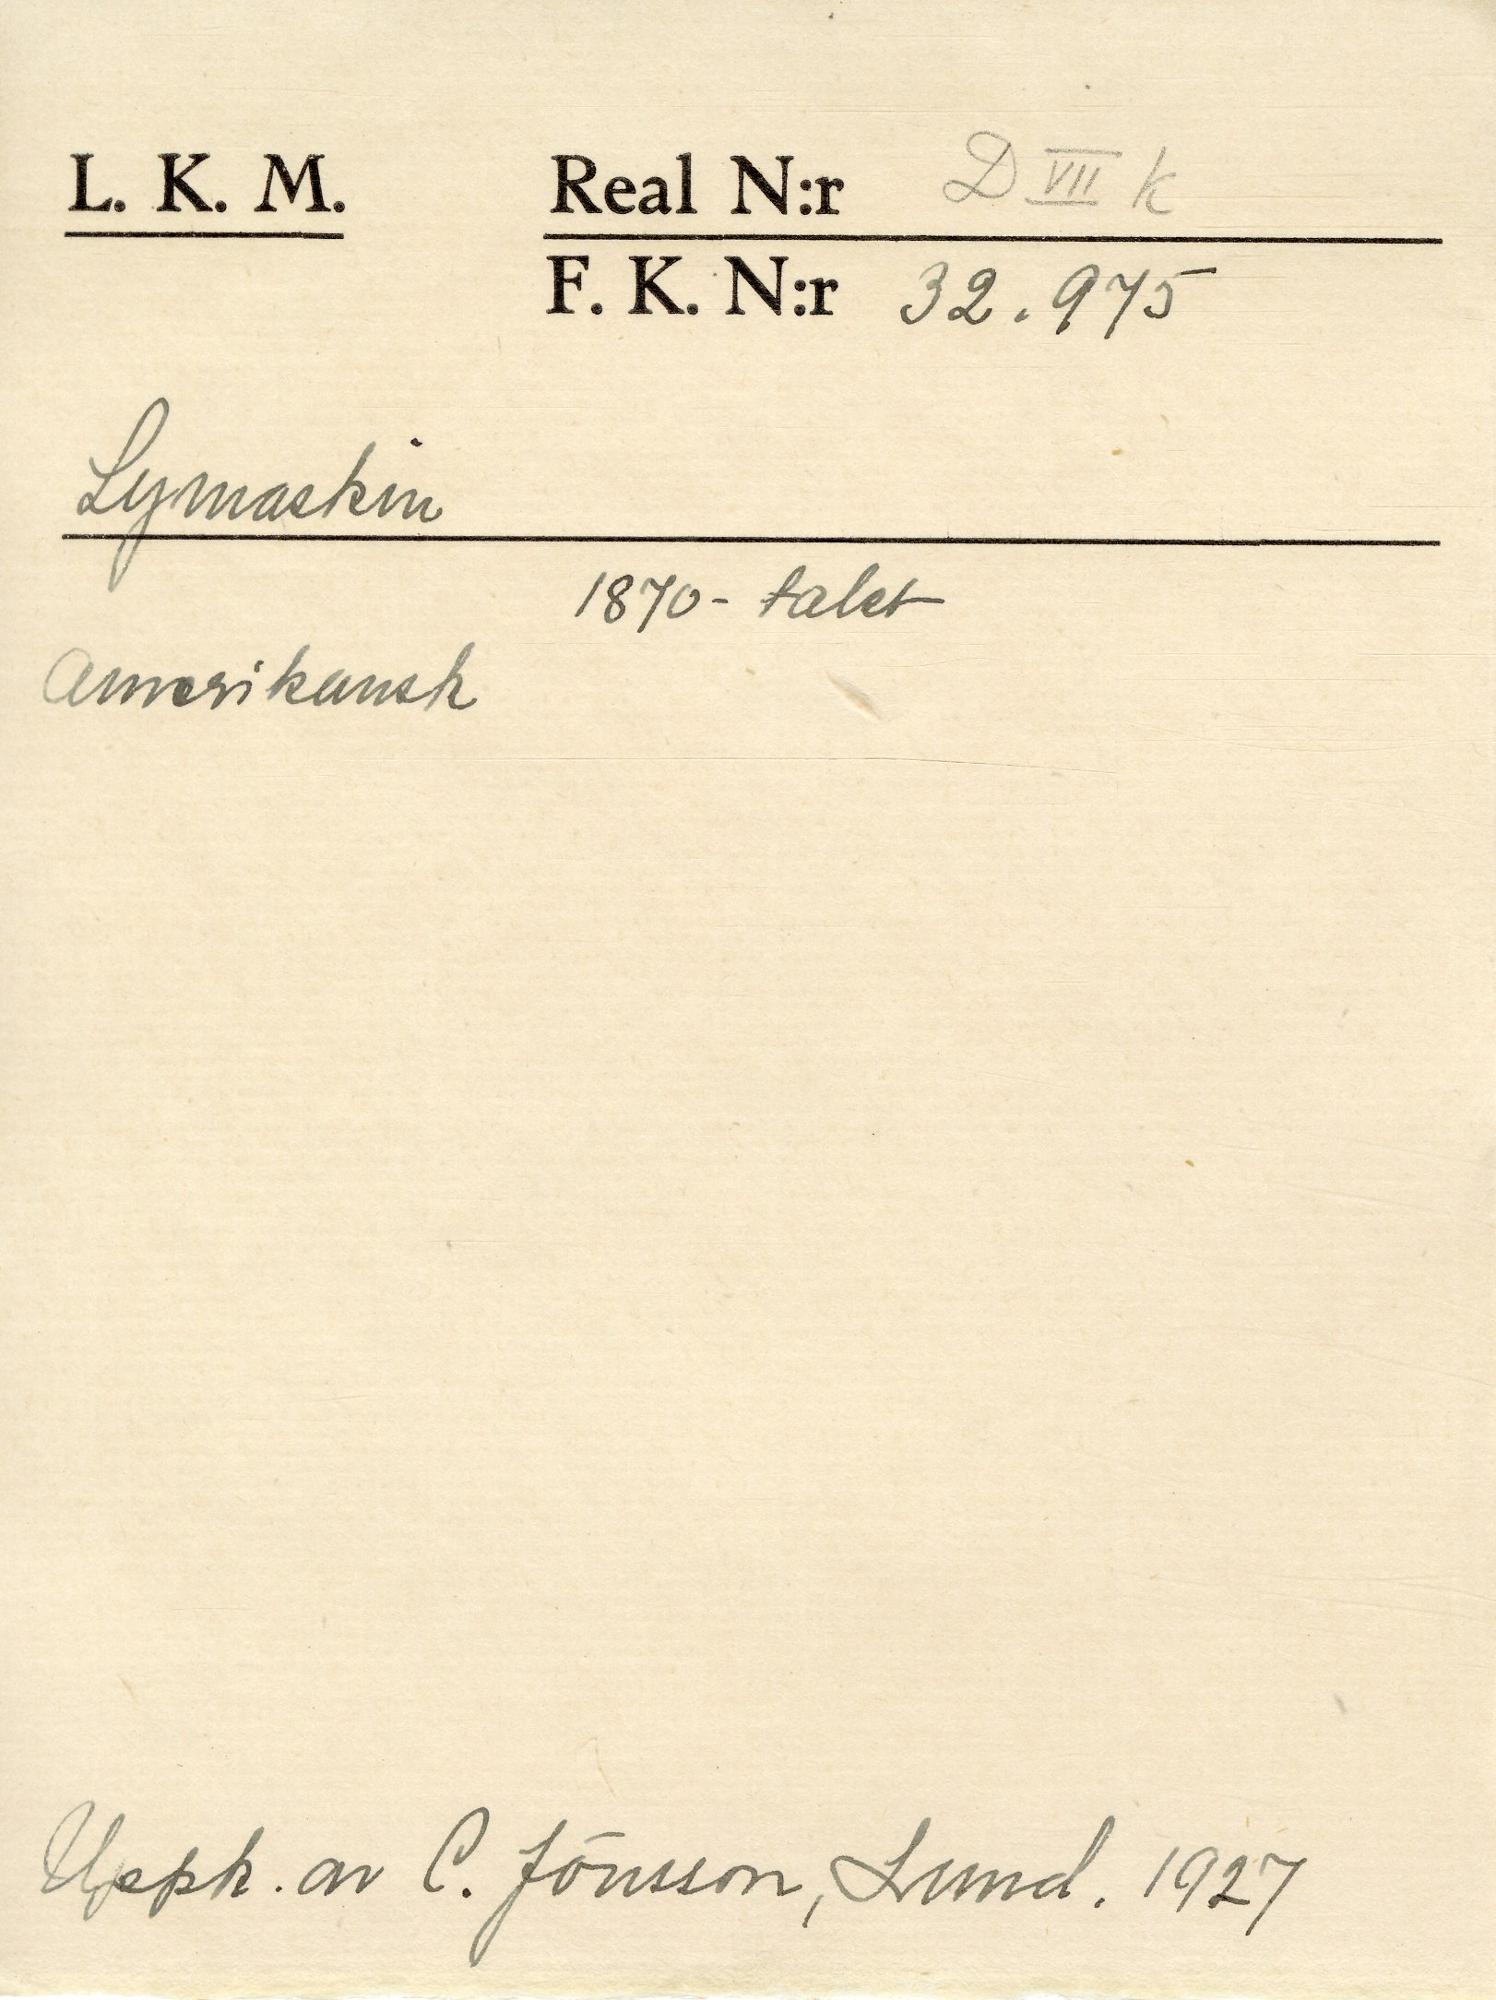 L. K. M.
Real N:r D VII k
F. K. N:r 32.975
Symaskin
1870-talet
Amerikansk
Uppk. av C. Jönsson, Lund. 1927